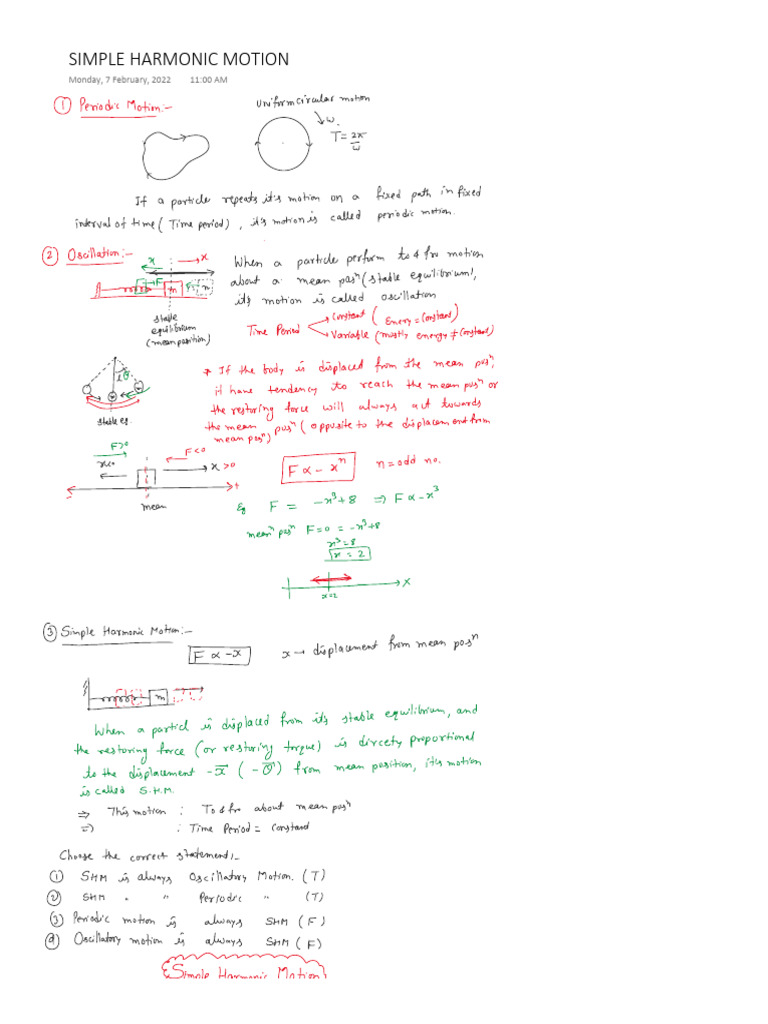 SIMPLE HARMONIC MOTION
Monday, 7 February, 2022 11:00 AM
① Periodic Motion:-
Uniform circular motion
ω
T = 2π/ω
If a particle repeats it's motion on a fixed path in fixed
interval of time ( Time period ) , it's motion is called periodic motion.
② Oscillation:-
x
x
F
m
F
m
stable
equilibrium
(mean position)
When a particle perform to & fro motion
about a mean posⁿ (stable equilibrium),
it's motion is called oscillation
Time Period
Constant ( Energy = Constant)
Variable (mostly energy ≠ constant)
θ
l
stable eq.
* If the body is displaced from the mean posⁿ,
it have tendency to reach the mean posⁿ or
the restoring force will always act towards
the mean posⁿ ( opposite to the displacement from
mean posⁿ)
F>0
F<0
x<0
x >0
- +
mean
F ∝ - xⁿ
n = odd no.
Eg F = -x³+8 ⇒ F ∝ -x³
meanⁿ posⁿ F=0 = -x³+8
x³=8
x = 2
x
x=2
③ Simple Harmonic Motion:-
F ∝ -x
x → displacement from mean posⁿ
m
When a particl is displaced from it's stable equilibrium, and
the restoring force (or restoring torque) is dircety proportional
to the displacement -x⃗ ( -θ⃗ ) from mean position, it's motion
is called S.H.M.
⇒ This motion : To & fro about mean posⁿ
⇒ : Time Period = Constand
Choose the correct statement:-
① SHM is always Oscillatory Motion. (T)
② SHM " " Periodic " (T)
③ Periodic motion is always SHM ( F )
④ Oscillatory motion is always SHM ( F )
Simple Harmonic Motion